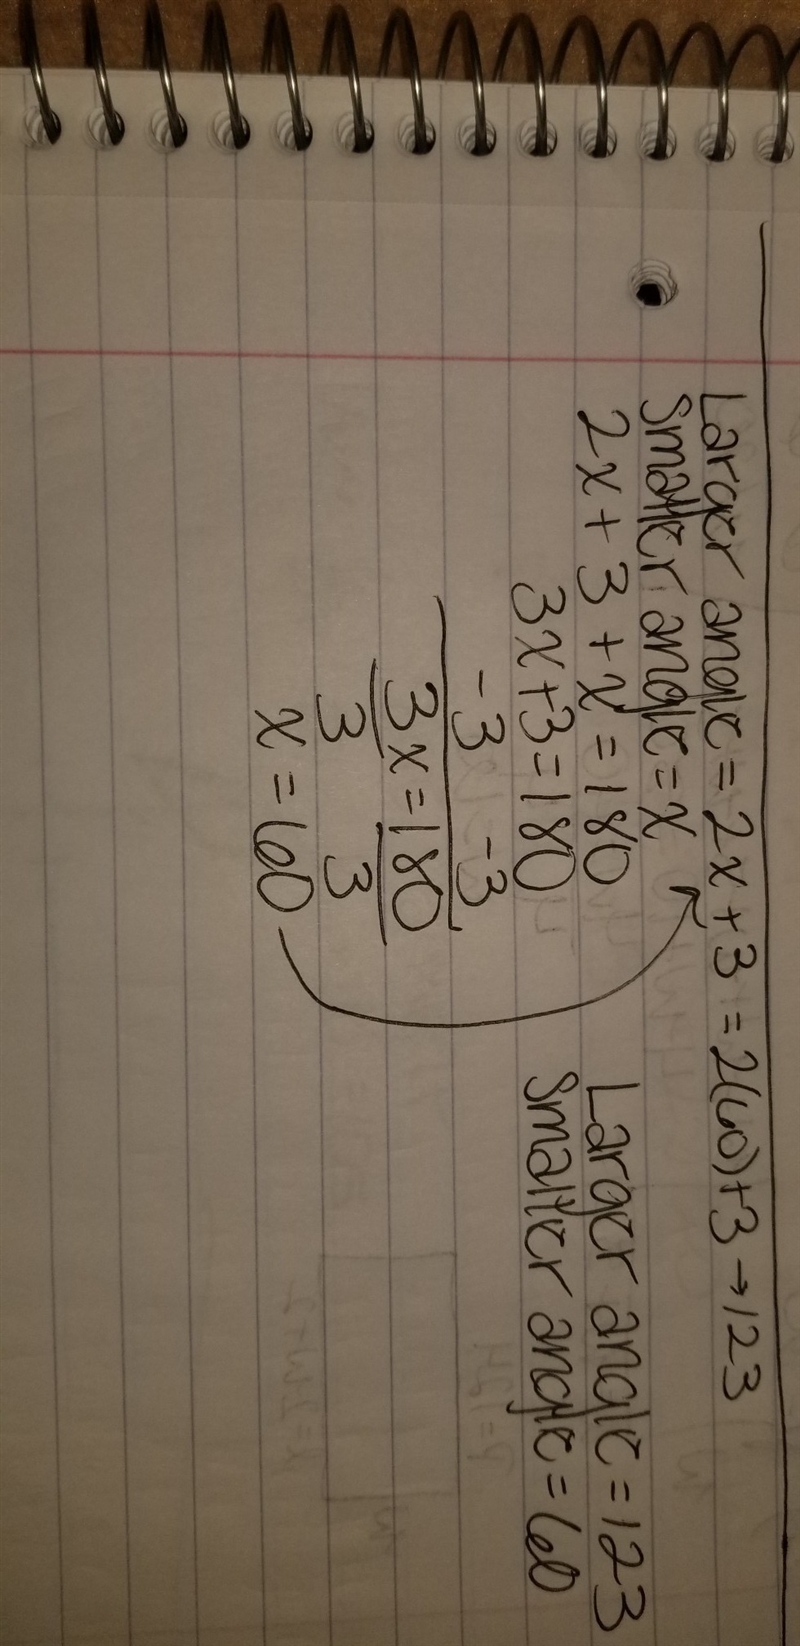 Larger angle = 2x + 3 = 2(60)+3 → 123
Smaller angle = x
2x + 3 + x = 180
3x + 3 = 180
-3 -3
3x = 180
3 3
x = 60
Larger angle = 123
Smaller angle = 60